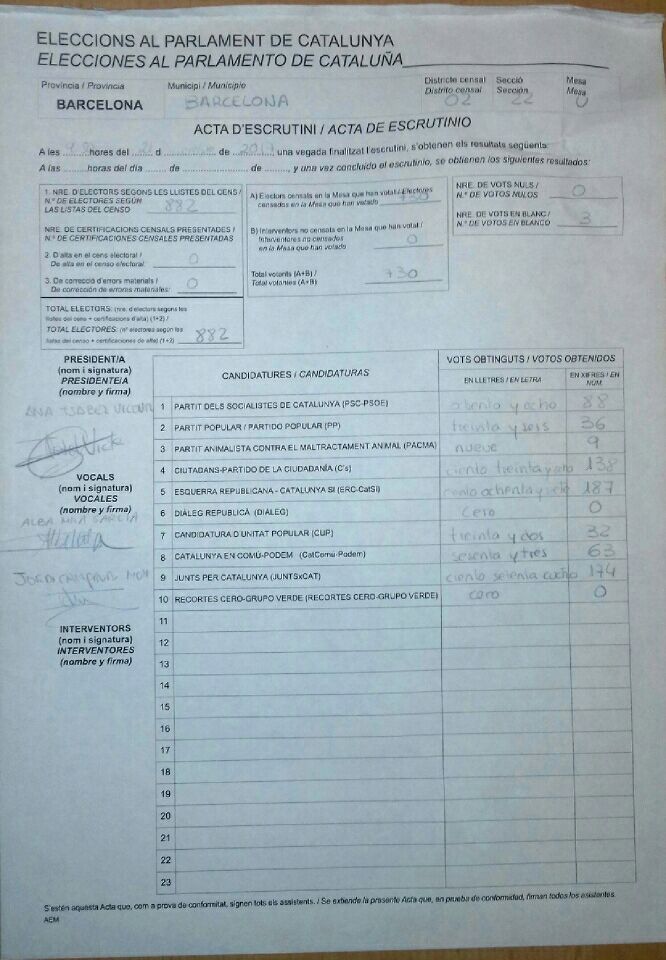 ELECCIONS AL PARLAMENT DE CATALUNYA
ELECCIONES AL PARLAMENTO DE CATALUÑA
Província / Provincia
BARCELONA
Municipi / Municipio
BARCELONA
Districte censal
Distrito censal
02
Secció
Sección
22
Mesa
Mesa
U
ACTA D'ESCRUTINI / ACTA DE ESCRUTINIO
A les hores del 21 d de 2017 una vegada finalitzat l'escrutini, s'obtenen els resultats següents:
A las horas del día de de , y una vez concluido el escrutinio, se obtienen los siguientes resultados:
1. NRE. D'ELECTORS SEGONS LES LLISTES DEL CENS /
N.º DE ELECTORES SEGÚN
LAS LISTAS DEL CENSO 882
NRE. DE CERTIFICACIONS CENSALS PRESENTADES /
N.º DE CERTIFICACIONES CENSALES PRESENTADAS
2. D'alta en el cens electoral /
De alta en el censo electoral: 0
3. De correcció d'errors materials /
De corrección de errores materiales: 0
TOTAL ELECTORS: (nre. d'electors segons les
llistes del cens + certificacions d'alta) (1+2) /
TOTAL ELECTORES: (nº electores según las
listas del censo + certificaciones de alta) (1+2) 882
A) Electors censats en la Mesa que han votat / Electores
censados en la Mesa que han votado 730
B) Interventors no censats en la Mesa que han votat /
Interventores no censados
en la Mesa que han votado 0
Total votants (A+B) /
Total votantes (A+B) 730
NRE. DE VOTS NULS /
N.º DE VOTOS NULOS 0
NRE. DE VOTS EN BLANC /
N.º DE VOTOS EN BLANCO 3
PRESIDENT/A
(nom i signatura)
PRESIDENTE/A
(nombre y firma)
ANA ISABEL VICENTE
VOCALS
(nom i signatura)
VOCALES
(nombre y firma)
ALBA GARCIA
JORDI
INTERVENTORS
(nom i signatura)
INTERVENTORES
(nombre y firma)
CANDIDATURES / CANDIDATURAS
VOTS OBTINGUTS / VOTOS OBTENIDOS
EN LLETRES / EN LETRA
EN XIFRES / EN NÚM.
1 PARTIT DELS SOCIALISTES DE CATALUNYA (PSC-PSOE) ochenta y ocho 88
2 PARTIT POPULAR / PARTIDO POPULAR (PP) treinta y seis 36
3 PARTIT ANIMALISTA CONTRA EL MALTRACTAMENT ANIMAL (PACMA) nueve 9
4 CIUTADANS-PARTIDO DE LA CIUDADANÍA (C's) ciento treinta y ocho 138
5 ESQUERRA REPUBLICANA - CATALUNYA SÍ (ERC-CatSí) ciento ochenta y siete 187
6 DIÀLEG REPUBLICÀ (DIÀLEG) cero 0
7 CANDIDATURA D'UNITAT POPULAR (CUP) treinta y dos 32
8 CATALUNYA EN COMÚ-PODEM (CatComú-Podem) sesenta y tres 63
9 JUNTS PER CATALUNYA (JUNTSxCAT) ciento setenta cuatro 174
10 RECORTES CERO-GRUPO VERDE (RECORTES CERO-GRUPO VERDE) cero 0
11
12
13
14
15
16
17
18
19
20
21
22
23
S'estén aquesta Acta que, com a prova de conformitat, signen tots els assistents. / Se extiende la presente Acta que, en prueba de conformidad, firman todos los asistentes.
AEM